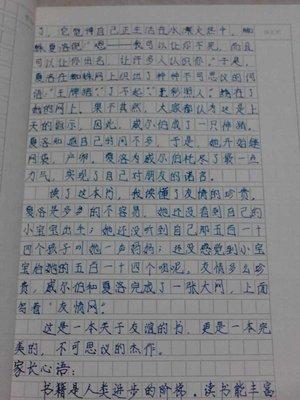 了，它觉得自己正生活在水深火热中，蜘
蛛夏洛说："嗯——我可以让你不死，而且
可以让你出名，让许多人认识你。"于是，
夏洛在蜘蛛网上织出了种种不可思议的词
语："王牌猪""了不起""光彩照人"绕在了
她的网上。果不其然，大家都认为这是上
天的指示，因此，威尔伯成了一只神猪，
夏洛和威尔伯的间不多，于是，她开始继
网袋，产卵，夏洛为威尔伯耗尽了最一点
力气，实现了自己对朋友的诺言。
读了这本书，我读懂了友情的珍贵，
夏洛是多当的不容易，她还没看到自己的
小宝宝出去；她还没听到自己那五百一十
四个孩子叫她一声妈妈；还没感觉到小宝
宝抱她的五百一十四个呢。友情多么珍
贵，威尔伯和夏洛完成了一张大网，上面
写着"友情网"。
这是一本关于友谊的书，更是一本完
美的，不可思议的杰作。
家长心语：
书籍是人类进步的阶梯。读书能丰富